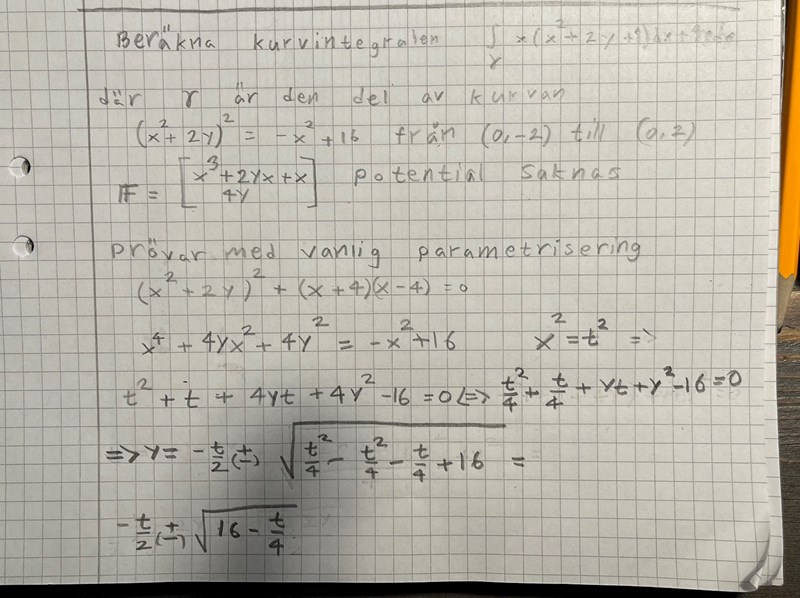 Beräkna kurvintegralen ∫γ x(x²+2y+1)dx+4ydy
där γ är den del av kurvan
(x²+2y)² = -x²+16 från (0,-2) till (0,2)
𝔽 = [x³+2yx+x
4y] potential saknas
prövar med vanlig parametrisering
(x²+2y)² + (x+4)(x-4) = 0
x⁴ + 4yx² + 4y² = -x²+16 x² = t² =>
t² + t + 4yt + 4y² -16 = 0 <=> t²/4 + t/4 + yt + y² -16 = 0
=> y = -t/2 (±) √(t²/4 - t²/4 - t/4 + 16) =
-t/2 (±) √(16 - t/4)